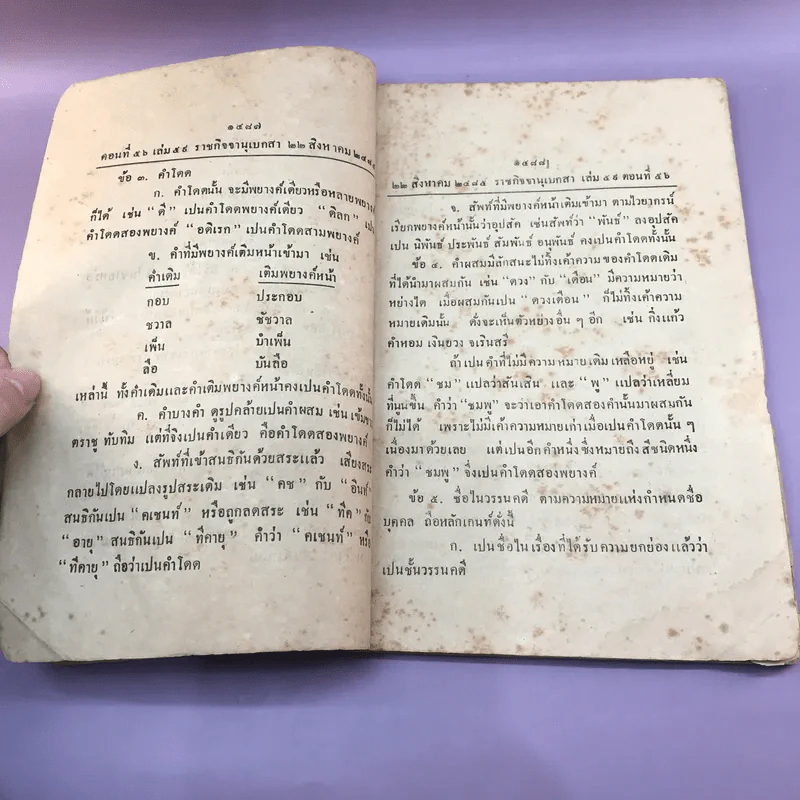 ๑๔๘๗
ตอนที่ ๕๖ เล่ม ๕๙ ราชกิจจานุเบกสา ๒๒ สิงหาคม ๒๔๘๕
ข้อ ๓. คำโดด
ก. คำโดดนั้น จะมีพยางค์เดียวหรือหลายพยางค์
ก็ได้ เช่น “ดี” เปนคำโดดพยางค์เดียว “ดิลก” เปน
คำโดดสองพยางค์ “อดิเรก” เปนคำโดดสามพยางค์
ข. คำที่มีพยางค์เติมหน้าเข้ามา เช่น
คำเดิม เติมพยางค์หน้า
กอบ ประกอบ
ชวาล ชัชวาล
เพ็น บำเพ็น
ลือ บันลือ
เหล่านี้ ทั้งคำเดิมและคำเติมพยางค์หน้าคงเปนคำโดดทั้งนั้น
ค. คำบางคำ ดูรูปคล้ายเปนคำผสม เช่น เข้มขา
ตราชู ทับทิม แต่ที่จิงเปนคำเดียว คือคำโดดสองพยางค์
ง. สัพท์ที่เข้าสนธิกันด้วยสระแล้ว เสียงสระ
กลายไปโดยแปลงรูปสระเดิม เช่น “คช” กับ “อินท์”
สนธิกันเปน “คเชนท์” หรือถูกลดสระ เช่น “ทีค” กับ
“อายุ” สนธิกันเปน “ทีคายุ” คำว่า “คเชนท์” หรือ
“ทีคายุ” ถือว่าเปนคำโดด
๑๔๘๘
๒๒ สิงหาคม ๒๔๘๕ ราชกิจจานุเบกสา เล่ม ๕๙ ตอนที่ ๕๖
จ. สัพท์ที่มีพยางค์หน้าเติมเข้ามา ตามไวยากรน์
เรียกพยางค์หน้านั้นว่าอุปสัค เช่นสัพท์ว่า “พันธ์” ลงอุปสัค
เปน นิพันธ์ ประพันธ์ สัมพันธ์ อนุพันธ์ คงเปนคำโดดทั้งนั้น
ข้อ ๔. คำผสมมีลักสนะไม่ทิ้งเค้าความของคำโดดเดิม
ที่ได้นำมาผสมกัน เช่น “ดวง” กับ “เดือน” มีความหมายว่า
หย่างใด เมื่อผสมกันเปน “ดวงเดือน” ก็ไม่ทิ้งเค้าความ
หมายเดิมนั้น ดั่งจะเห็นตัวหย่างอื่น ๆ อีก เช่น กิ่งแก้ว
คำหอม เงินยวง จเรินสรี
ถ้าเปนคำที่ไม่มีความหมายเดิมเหลือหยู่ เช่น
คำโดด “ชม” แปลว่าสันเสิน และ “พู” แปลว่าเหลี่ยม
ที่นูนขึ้น คำว่า “ชมพู” จะว่าเอาคำโดดสองคำนั้นมาผสมกัน
ก็ไม่ได้ เพราะไม่มีเค้าความหมายเก่าเมื่อเปนคำโดดนั้น ๆ
เนื่องมาด้วยเลย แต่เปนอีกคำหนึ่ง ซึ่งหมายถึงสีชนิดหนึ่ง
คำว่า “ชมพู” จึ่งเปนคำโดดสองพยางค์
ข้อ ๕. ชื่อในวรรนคดี ตามความหมายแห่งกำหนดชื่อ
บุคคล ถือหลักเกนท์ดั่งนี้
ก. เปนชื่อในเรื่องที่ได้รับความยกย่องแล้วว่า
เปนชั้นวรรนคดี